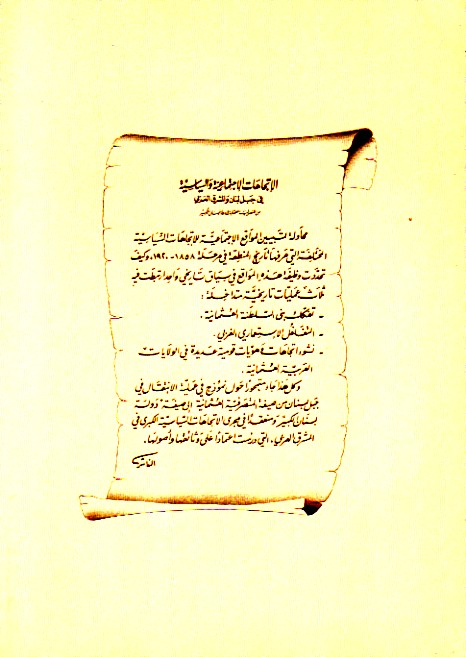 الاتجاهات الاجتماعية والسياسية
في جبل لبنان والمشرق العربي
محاولة لتبيين المواقع الاجتماعية للاتجاهات السياسية
المختلفة التي عرفها تاريخ المنطقة في مرحلة ١٨٥٨-١٩٢٠، وكيف
تحددت وظيفة هذه المواقع في سياق تاريخي واحد ارتبطت فيه
ثلاث عمليات تاريخية متداخلة:
- تفكك بنى السلطنة العثمانية.
- التغلغل الاستعماري الغربي.
- نشوء اتجاهات وهويات قومية عديدة في الولايات
العربية العثمانية.
وكل هذا جاء متمحورا حول نموذج في عملية الانتقال في
جبل لبنان من صيغة المتصرفية العثمانية إلى صيغة "دولة
لبنان الكبير" ومنعقدا في مجرى الاتجاهات السياسية الكبرى في
المشرق العربي، التي درست اعتمادا على وثائقها وأصولها.
الناشر